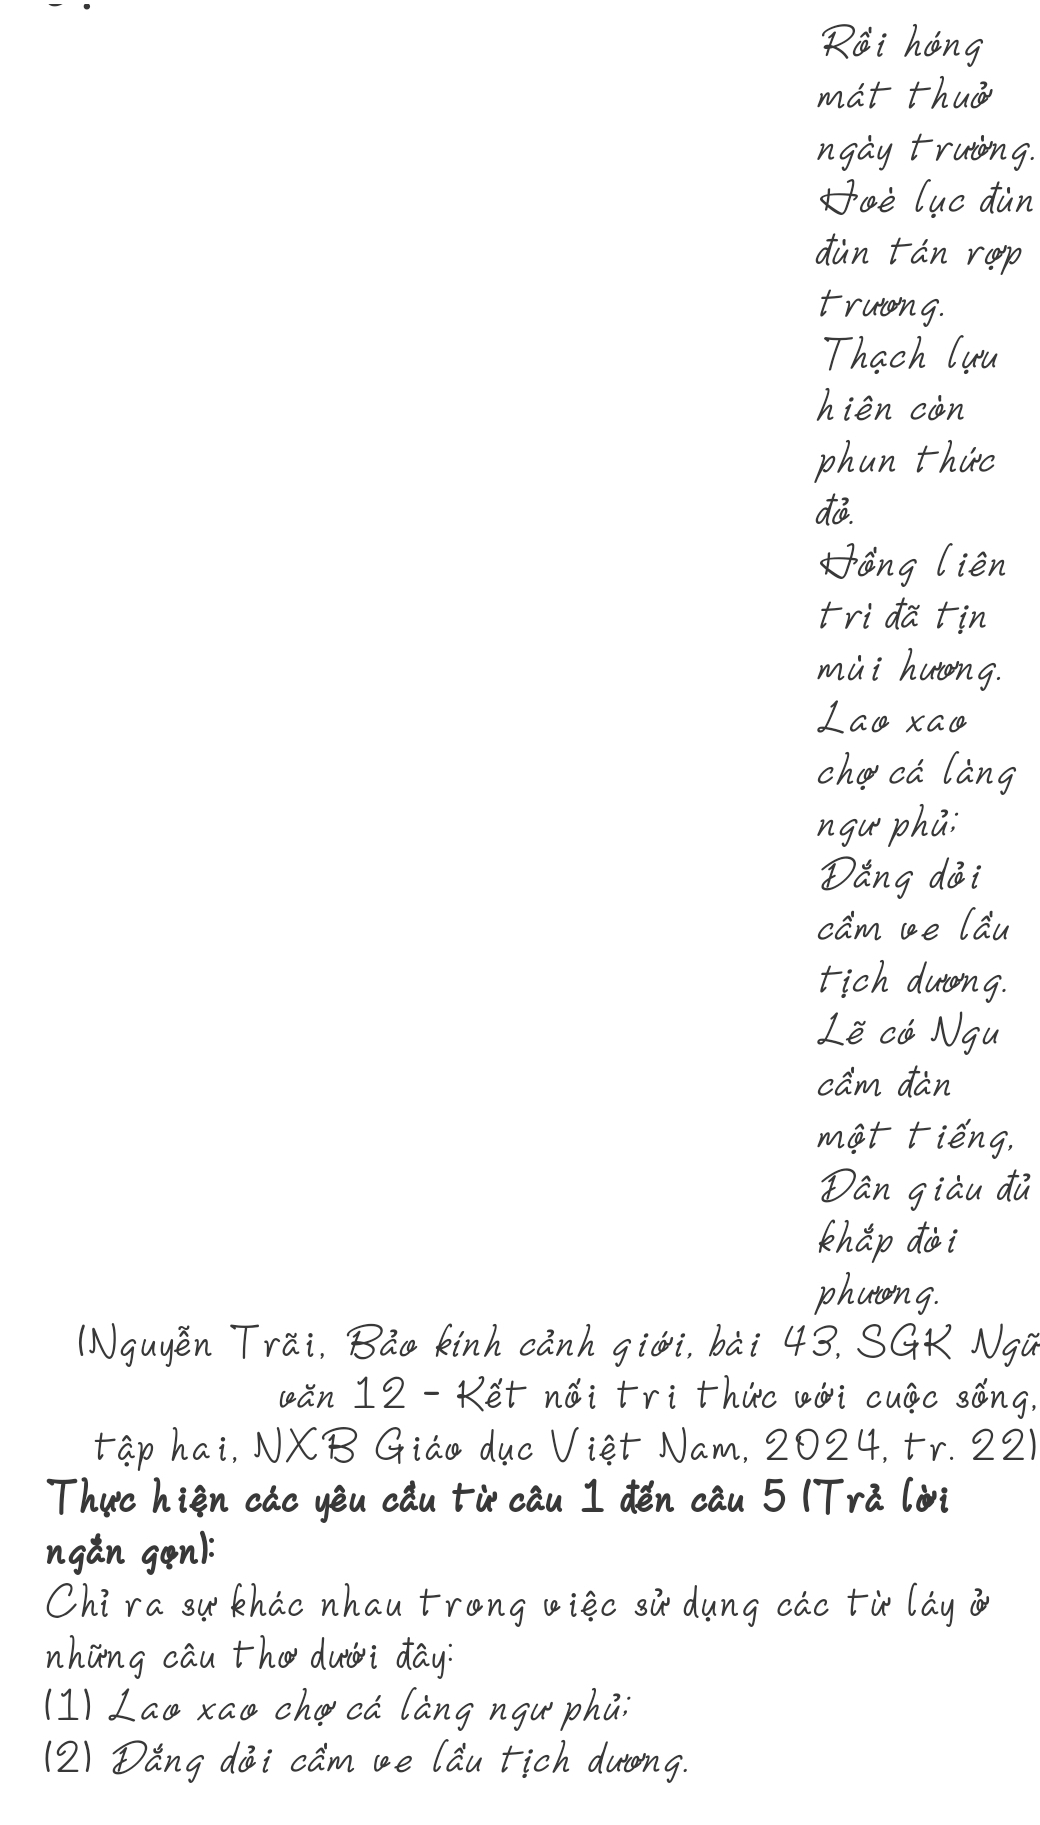 Rồi hóng
mát thuở
ngày trường.
Hoè lục đùn
đùn tán rợp
trương.
Thạch lựu
hiên còn
phun thức
đỏ.
Hồng liên
trì đã tịn
mùi hương.
Lao xao
chợ cá làng
ngư phủ;
Dắng dỏi
cầm ve lầu
tịch dương.
Lẽ có Ngu
cầm đàn
một tiếng,
Dân giàu đủ
khắp đòi
phương.
(Nguyễn Trãi, Bảo kính cảnh giới, bài 43, SGK Ngữ
văn 12 – Kết nối tri thức với cuộc sống,
tập hai, NXB Giáo dục Việt Nam, 2024, tr. 22)
Thực hiện các yêu cầu từ câu 1 đến câu 5 (Trả lời
ngắn gọn):
Chỉ ra sự khác nhau trong việc sử dụng các từ láy ở
những câu thơ dưới đây:
(1) Lao xao chợ cá làng ngư phủ;
(2) Dắng dỏi cầm ve lầu tịch dương.